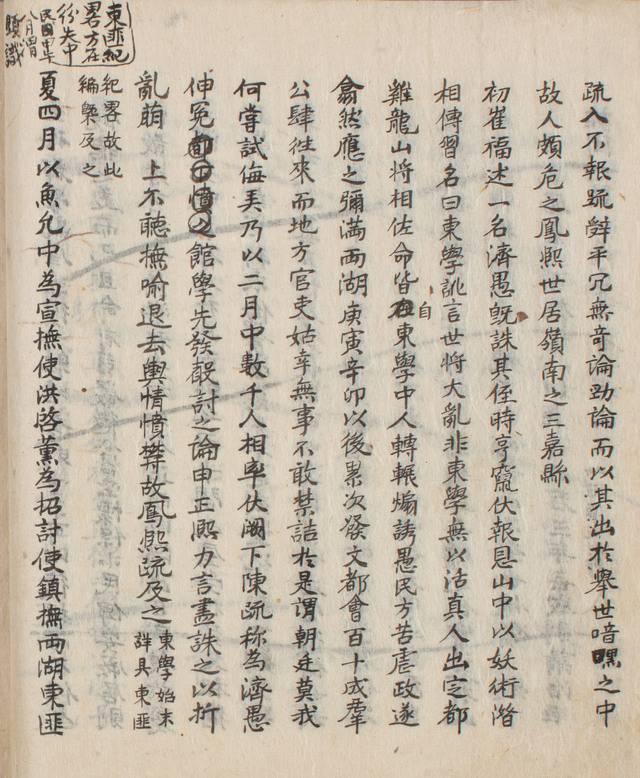 疏入不報疏辭平冗無奇論劾論而以其出於舉世喑嘿之中
故人頗危之鳳熙世居嶺南之三嘉縣
初崔福述一名濟愚旣誅其侄時亨竄伏報恩山中以妖術潛
相傳習名曰東學訛言世將大亂非東學無以活真人出定都
雞龍山將相佐命皆自東學中人轉輾煽誘愚民方苦虐政遂
翕然應之彌滿兩湖庚寅辛卯以後累次發文都會百十成羣
公肆往來而地方官吏姑幸無事不敢禁詰於是謂朝廷莫我
何嘗試侮弄乃以二月中數千人相率伏闕下陳疏称為濟愚
伸冤館學先發聲討之論申正熙力言盡誅之以折
亂萌 上不聽撫喻退去輿情憤欝故鳳熙疏及之
東學始末
詳具東匪
紀畧故此
編槩及之
夏四月以魚允中為宣撫使洪啓薰為招討使鎮撫兩湖東匪
東匪紀
畧方在
失中
民國
識